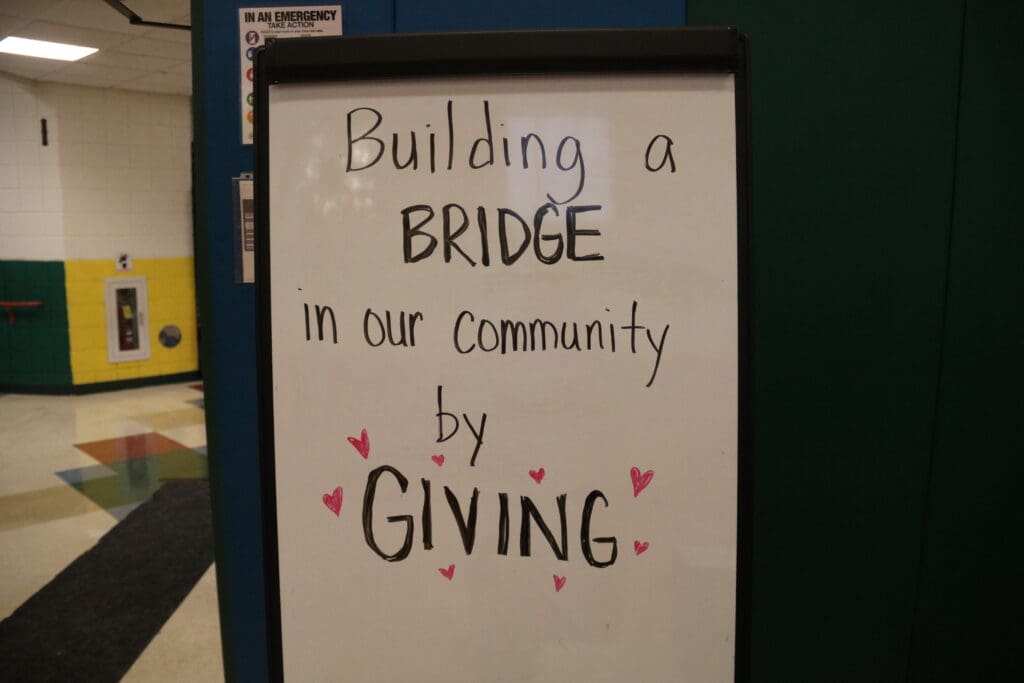 IN AN EMERGENCY
TAKE ACTION
Building a
BRIDGE
in our community
by
GIVING